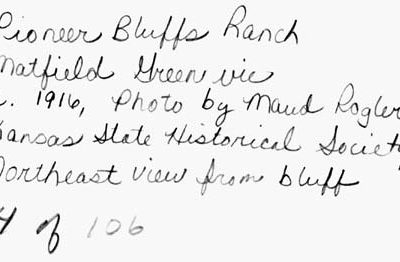 Pioneer Bluffs Ranch
Matfield Green vic
c. 1916, Photo by Maud Rogler
Kansas State Historical Society
Northeast view from bluff
4 of 106